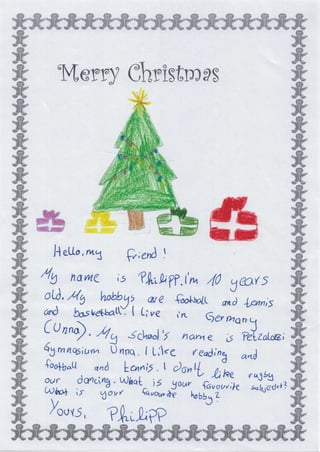 Merry Christmas
Hello, my friend!
My name is Philipp. I'm 10 years
old. My hobbys are football and tennis
and basketball. I live in Germany
(Unna). My school's name is Petzalozzi
Gymnasium Unna. I like reading and
football and tennis. I don't like rugby
our dancing. What is your favourite subject?
What is your favourite hobby?
Yours, Philipp